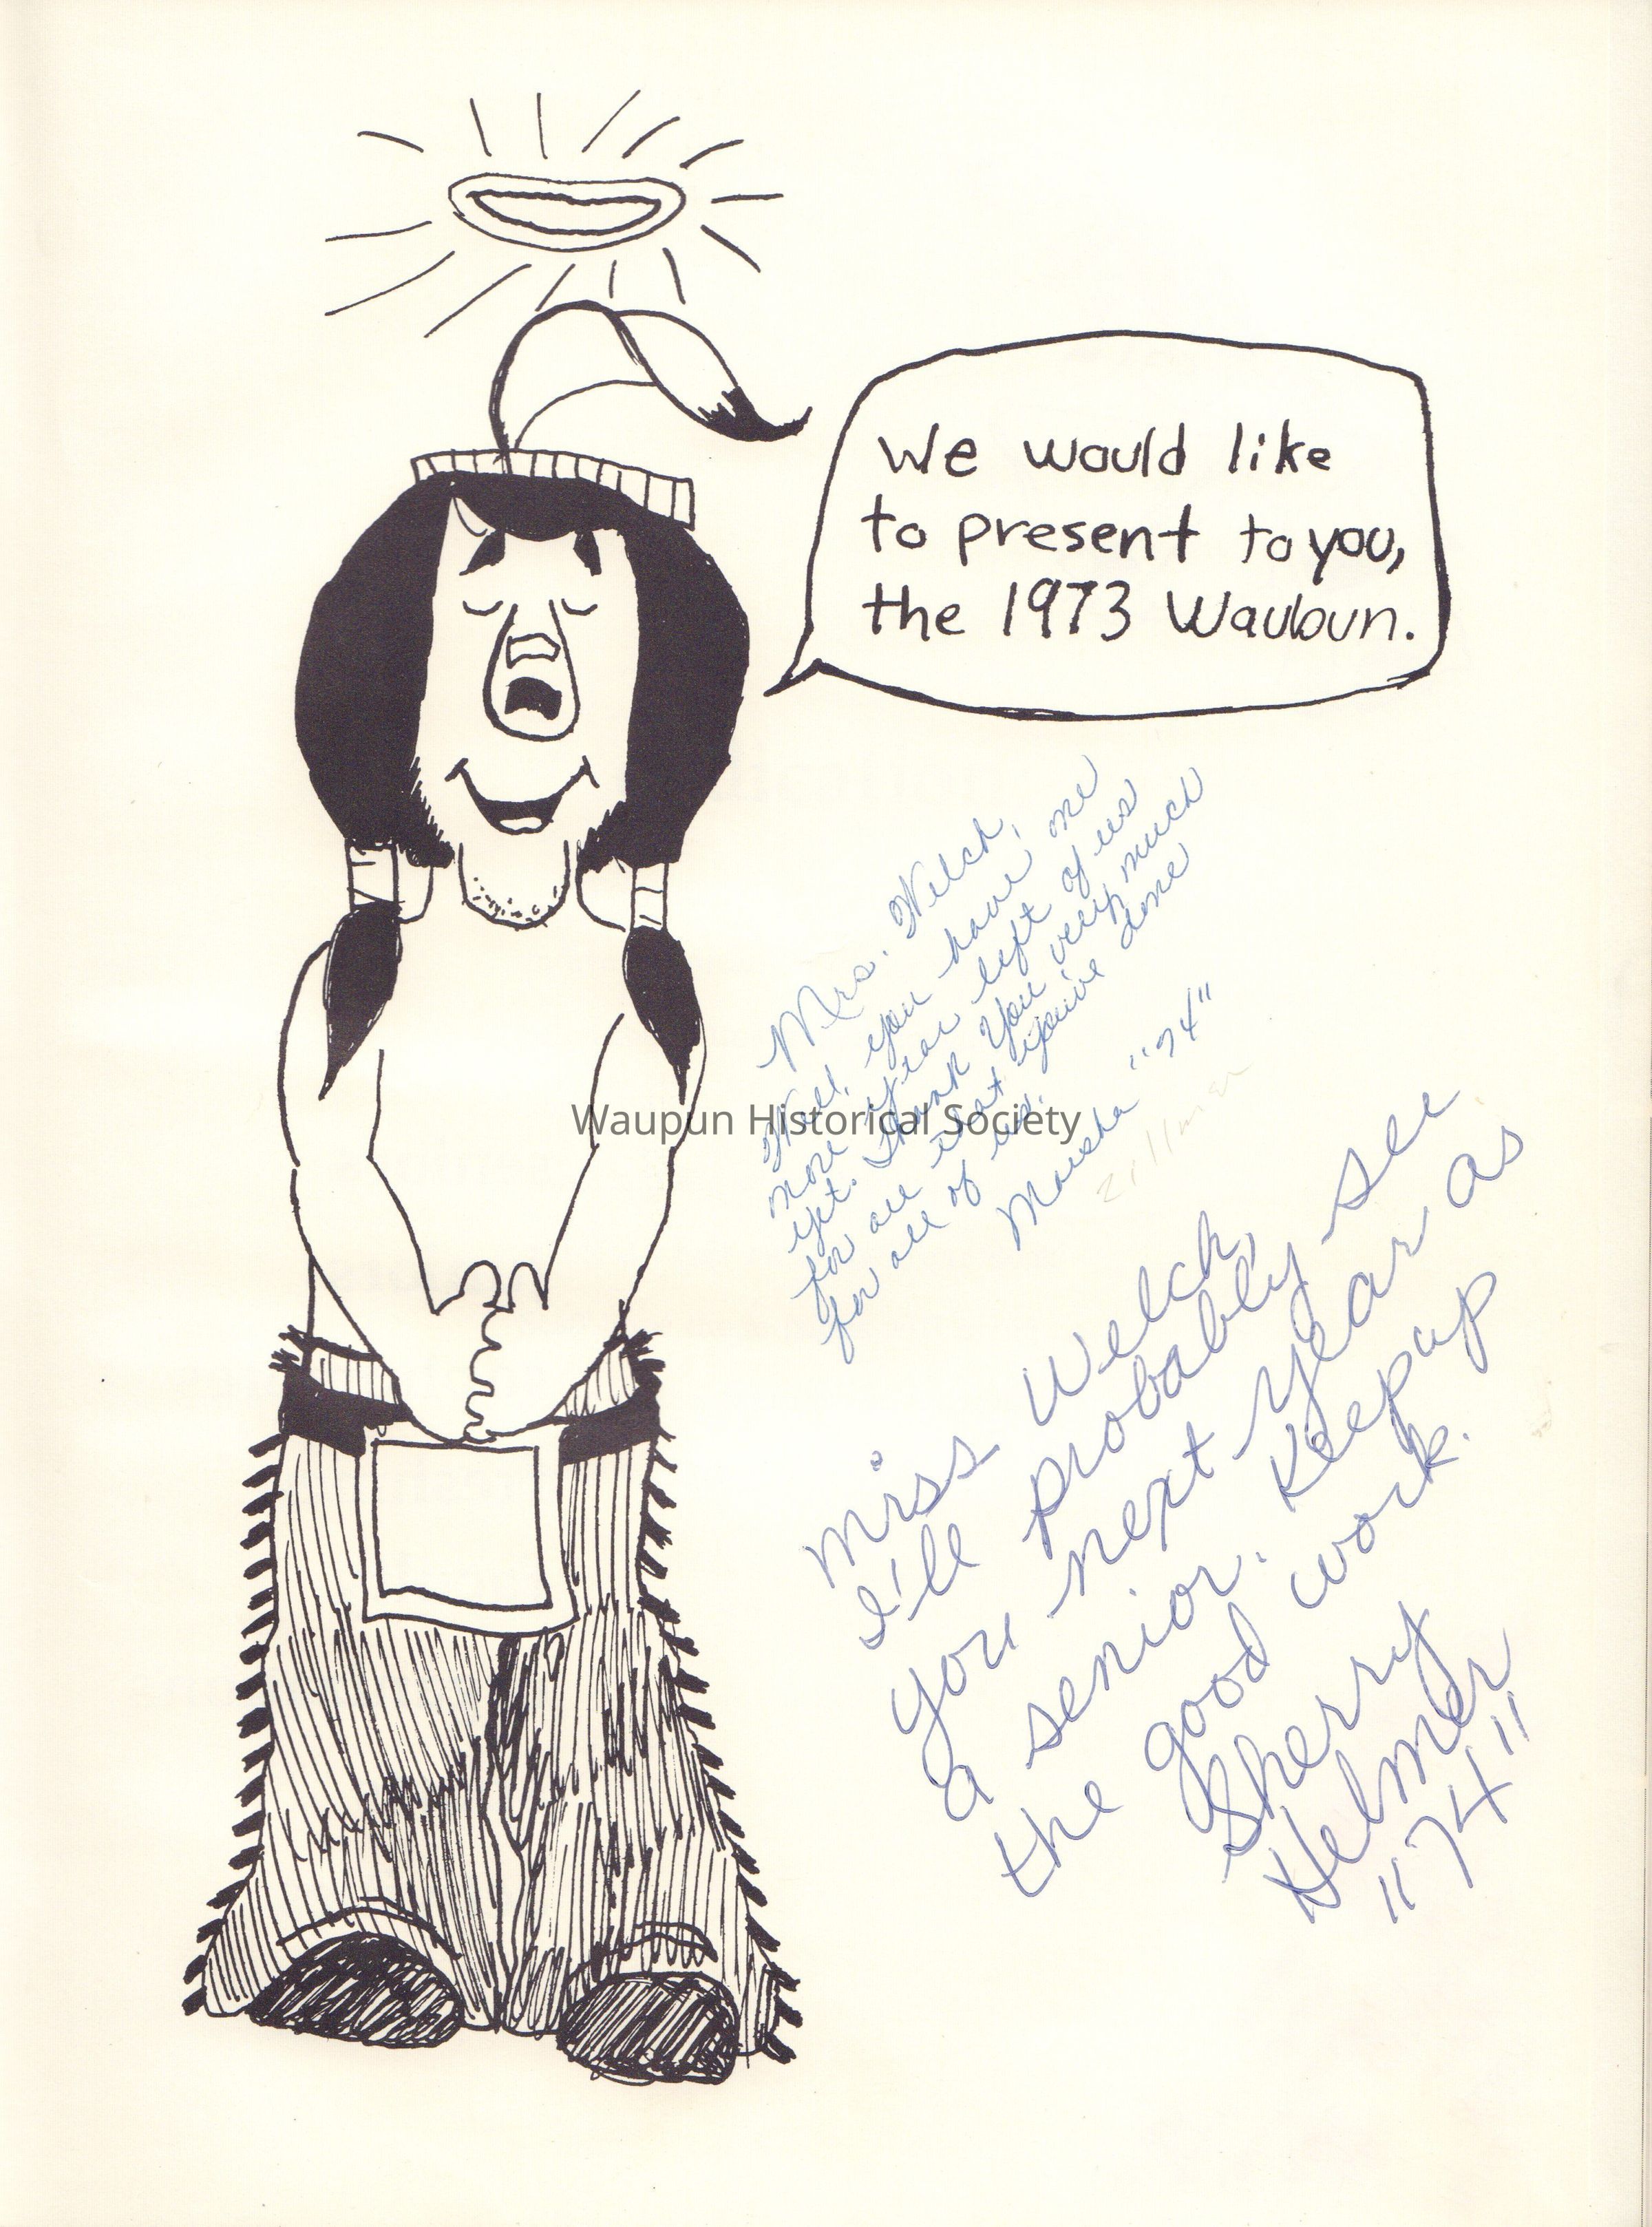 We would like
to present to you,
the 1973 Waubun.
Mrs. Welch,
Well, you have one
more year left of us
yet. Thank you very much
for all that you've done
for all of us.
Marsha "74"
Zillmer
Waupun Historical Society
Miss Welch,
I'll probably see
you next year as
a senior. Keep up
the good work.
Sherry
Helmer
"74"